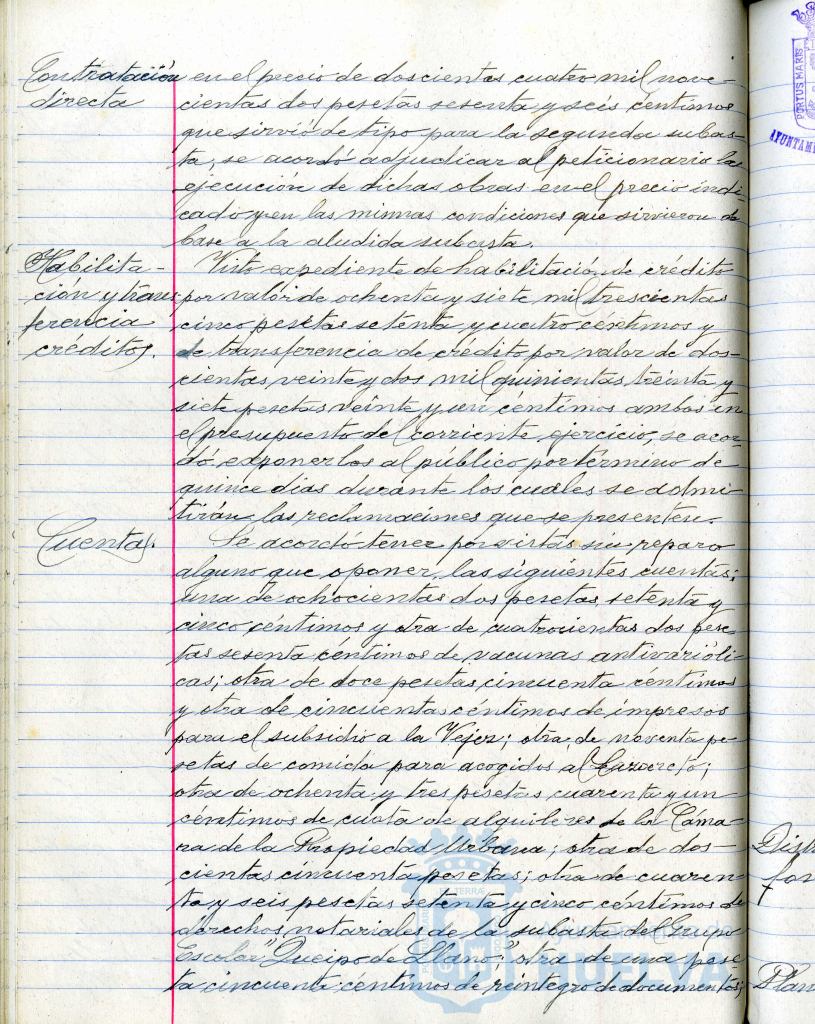 Contratación
directa
en el precio de doscientas cuatro mil nove-
cientas dos pesetas sesenta y seis centimos
que sirvió de tipo para la segunda subas-
ta, se acordó adjudicar al peticionario la
ejecución de dichas obras en el precio indi-
cado y en las mismas condiciones que sirvieron de
base a la aludida subasta.
Habilita-
ción y trans
ferencia
créditos.
Visto expediente de habilitación de crédito
por valor de ochenta y siete mil trescientas
cinco pesetas setenta y cuatro céntimos y
de transferencia de crédito por valor de dos-
cientas veinte y dos mil quinientas treinta y
siete pesetas veinte y un céntimos ambos en
el presupuesto del corriente ejercicio, se acor-
dó exponerlos al público por término de
quince dias durante los cuales se admi-
tirán las reclamaciones que se presenten.
Cuentas.
Se acordó tener por vistas sin reparo
alguno que oponer, las siguientes cuentas:
una de ochocientas dos pesetas, setenta y
cinco céntimos y otra de cuatrocientas dos pese-
tas sesenta céntimos de vacunas antivarióli-
cas; otra de doce pesetas cincuenta centimos
y otra de cincuenta céntimos de impresos
para el subsidio a la Vejez; otra, de noventa pe-
setas de comida para acogidos al Lazareto;
otra de ochenta y tres pesetas cuarenta y un
centimos de cuota de alquileres de la Cáma-
ra de la Propiedad Urbana; otra de dos-
cientas cincuenta pesetas; otra de cuaren-
ta y seis pesetas setenta y cinco céntimos de
derechos notariales de la subasta del Grupo
Escolar "Queipo de Llano;" otra de una pese-
ta cincuenta céntimos de reintegro de documentos;
PORTUS MARIS
AYUNTAM
HUELVA